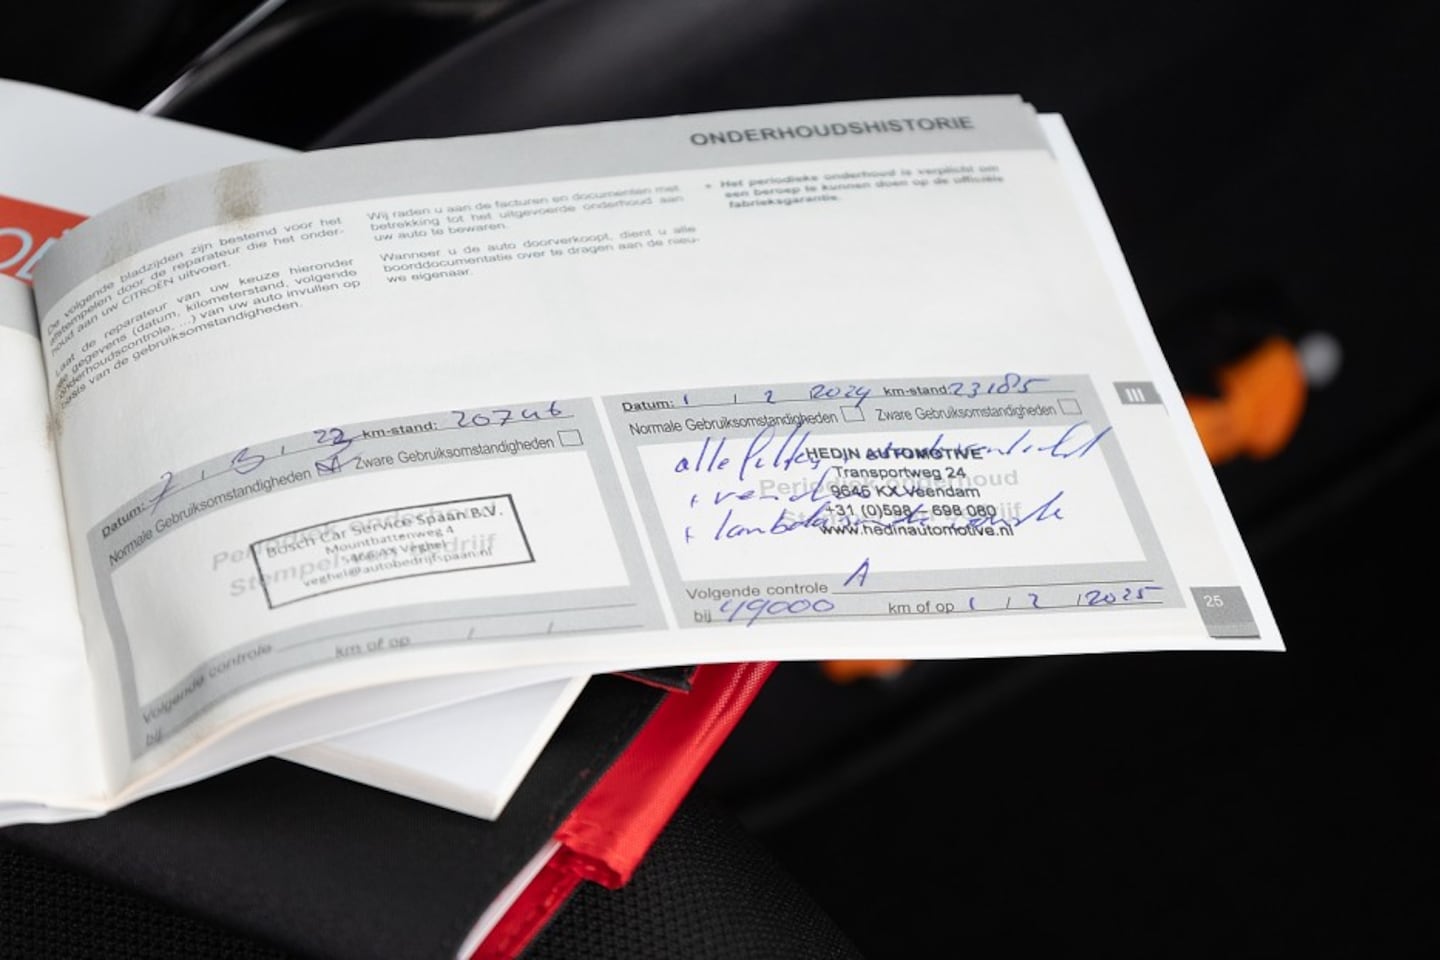 ONDERHOUDSHISTORIE
De volgende bladzijden zijn bestemd voor het
afstempelen door de reparateur die het onder-
houd aan uw CITROËN uitvoert.
Laat de reparateur van uw keuze hieronder
alle gegevens (datum, kilometerstand, volgende
onderhoudscontrole, ...) van uw auto invullen op
basis van de gebruiksomstandigheden.
Wij raden u aan de facturen en documenten met
betrekking tot het uitgevoerde onderhoud aan
uw auto te bewaren.
Wanneer u de auto doorverkoopt, dient u alle
boorddocumentatie over te dragen aan de nieu-
we eigenaar.
• Het periodieke onderhoud is verplicht om
een beroep te kunnen doen op de officiële
fabrieksgarantie.
Datum: 7 / 3 / 22 km-stand: 20746
Normale Gebruiksomstandigheden Zware Gebruiksomstandigheden
Periodiek onderhoud
Stempel van bedrijf
Bosch Car Service Spaan B.V.
Mountbattenweg 4
Veghel
veghel@autobedrijfspaan.nl
Volgende controle
bij km of op / /
Datum: 1 / 2 2024 km-stand: 23185
Normale Gebruiksomstandigheden Zware Gebruiksomstandigheden
alle filters
Periodiek onderhoud
HEDIN AUTOMOTIVE
Transportweg 24
9645 KX Veendam
+31 (0)598 - 698 080
www.hedinautomotive.nl
Volgende controle A
bij 49000 km of op 1 / 2 / 2025
III
25